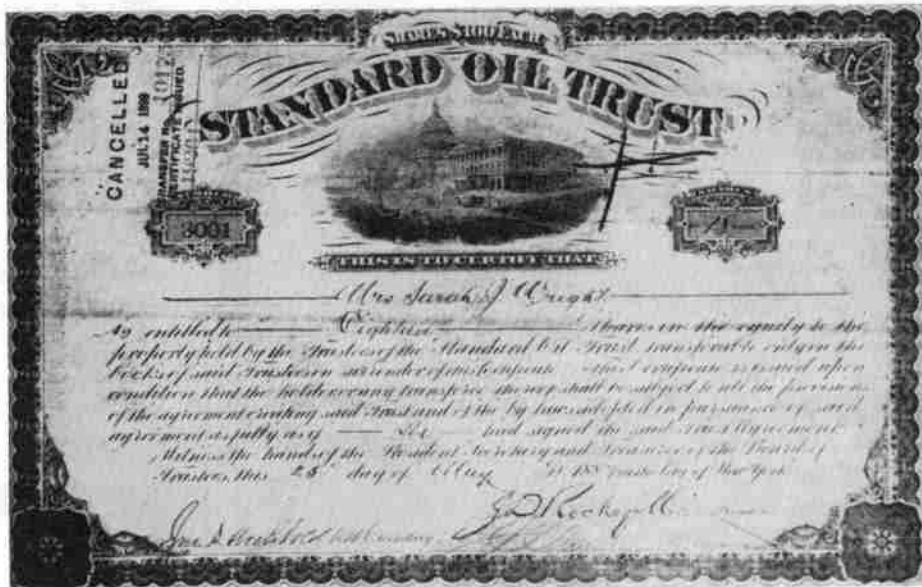 SHARES $100 EACH
STANDARD OIL TRUST
CANCELLED
JUL 14 1898
TRANSFER No.
CERTIFICATE ISSUED.
3001
THIS IS TO CERTIFY THAT
Mrs Sarah J. Wright
is entitled to Eighteen Shares in the equity to the
property held by the Trustees of the Standard Oil Trust transferable only on the
books of said Trustees on surrender of this certificate. This certificate is issued upon
condition that the holder or any transferee thereof shall be subject to all the provisions
of the agreement creating said Trust and of the by laws adopted in pursuance of said
agreement as fully as if had signed the said Trust Agreement.
Witness the hands of the President Secretary and Treasurer of the Board of
Trustees this 25 day of May at the City of New York